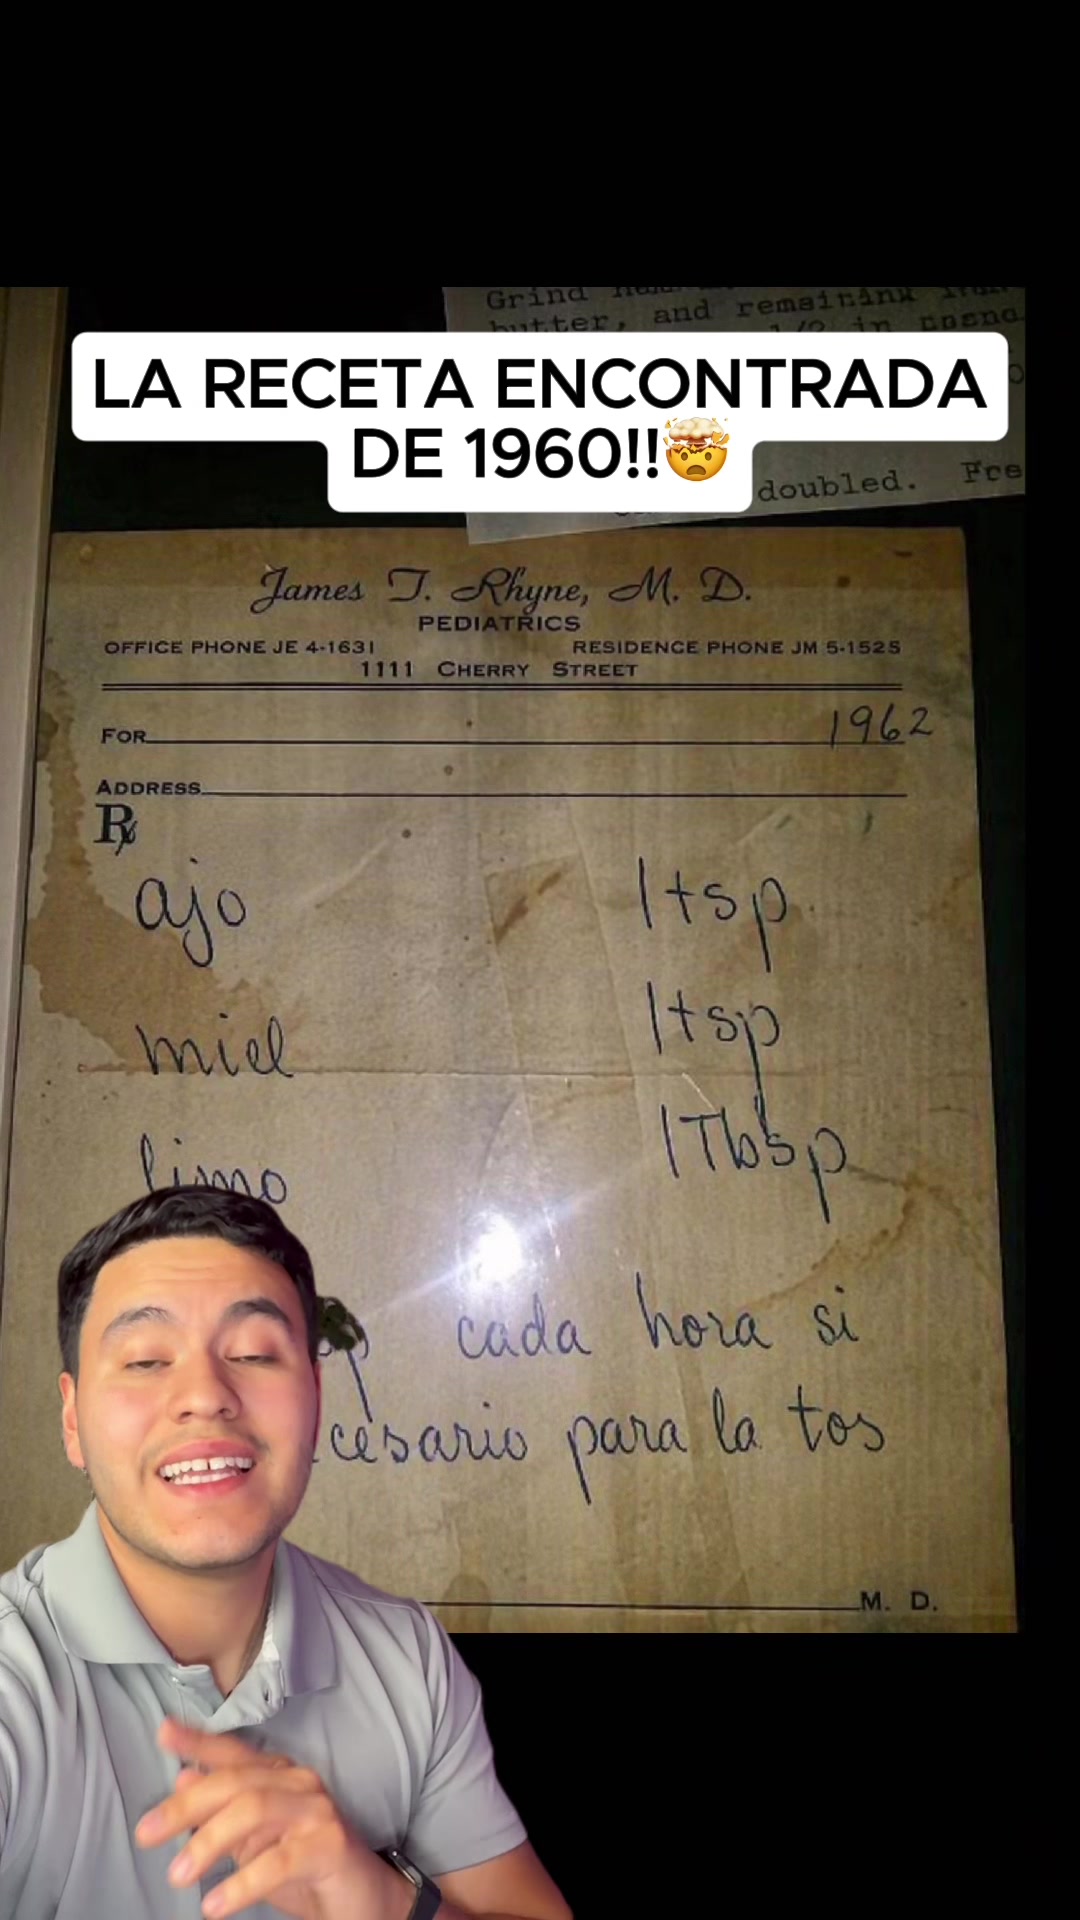 Grind
butter, and remaining
1/2 in
LA RECETA ENCONTRADA
DE 1960!!🤯
doubled. Fre
James T. Rhyne, M. D.
PEDIATRICS
OFFICE PHONE JE 4-1631 RESIDENCE PHONE JM 5-1525
1111 CHERRY STREET
FOR 1962
ADDRESS
℞
ajo 1 tsp
miel 1 tsp
limo 1 Tbsp
cada hora si
cesario para la tos
M. D.